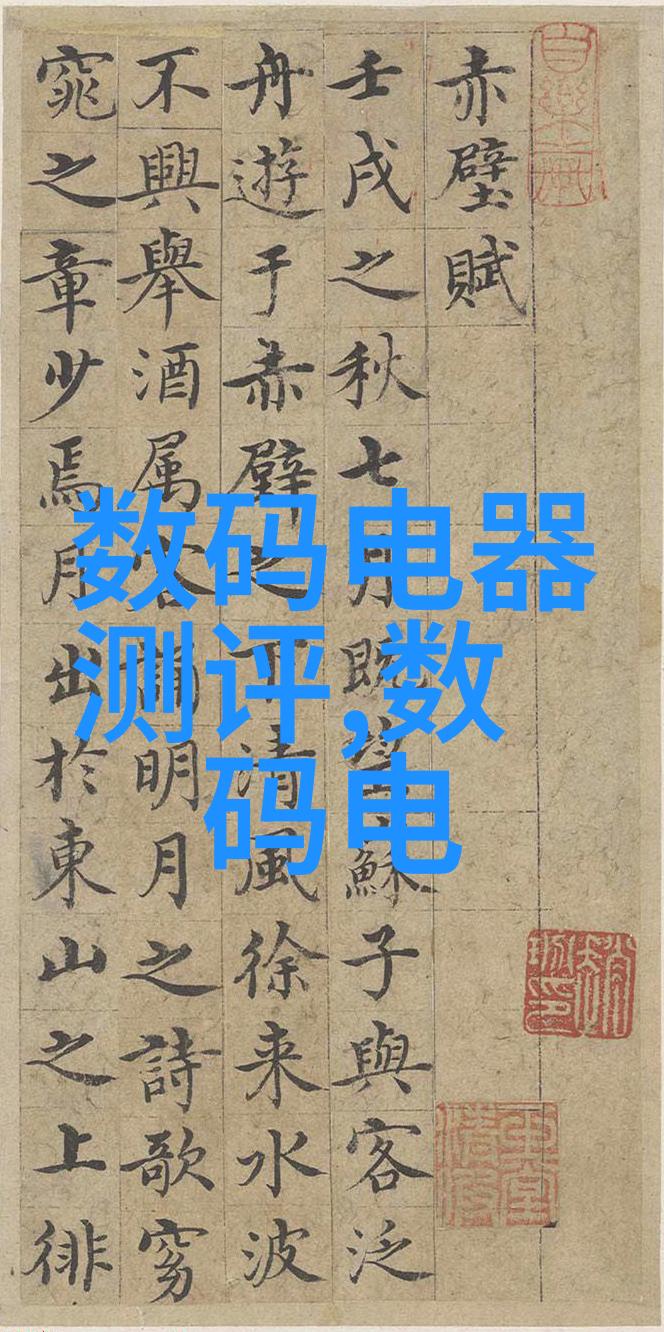 赤壁賦
壬戌之秋七月既望蘇子與客泛
舟遊于赤壁之下清風徐来水波
不興舉酒属客誦明月之詩歌窈
窕之章少焉月出於東山之上徘
数码电器
测评,数
码电